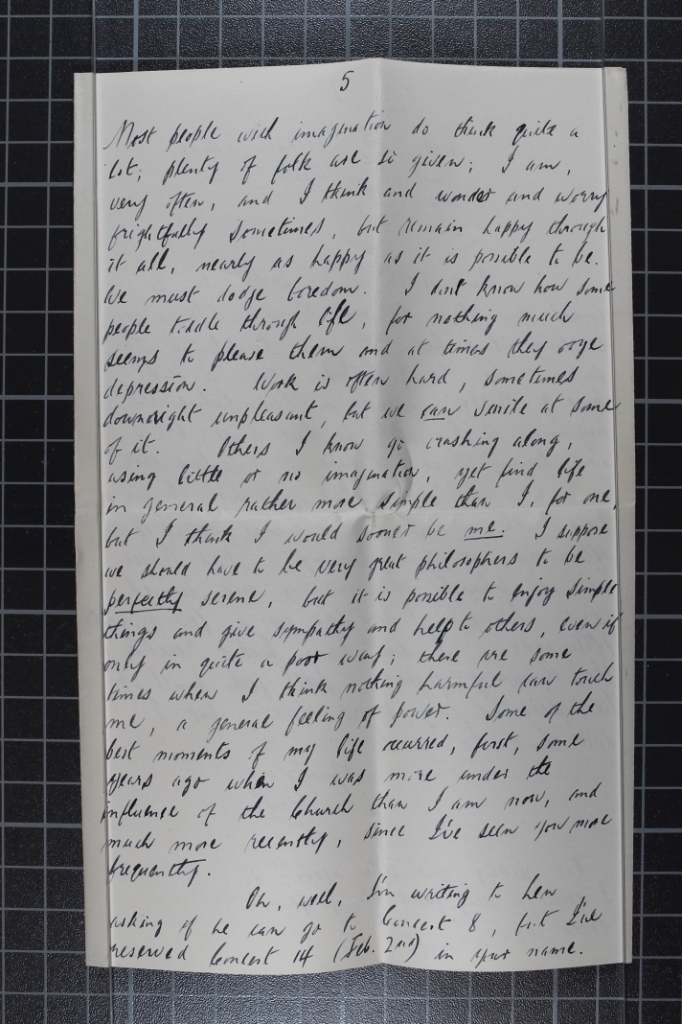 5
Most people with imagination do think quite a
lot; plenty of folk are so given; I am,
very often, and I think and wonder and worry
frightfully sometimes, but remain happy through
it all, nearly as happy as it is possible to be.
We must dodge boredom. I don't know how some
people toddle through life, for nothing much
seems to please them and at times they ooze
depression. Work is often hard, sometimes
downright unpleasant, but we can smile at some
of it. Others I know go crashing along,
using little or no imagination, yet find life
in general rather more simple than I, for one,
but I think I would sooner be me. I suppose
we should have to be very great philosophers to be
perfectly serene, but it is possible to enjoy simple
things and give sympathy and help to others, even if
only in quite a poor way; there are some
times when I think nothing harmful can touch
me, a general feeling of power. Some of the
best moments of my life occurred, first, some
years ago when I was more under the
influence of the Church than I am now, and
much more recently, since I've seen you more
frequently.
Oh, well, I'm writing to Len
asking if he can go to Concert 8, but I've
reserved Concert 14 (Feb. 2nd) in your name.